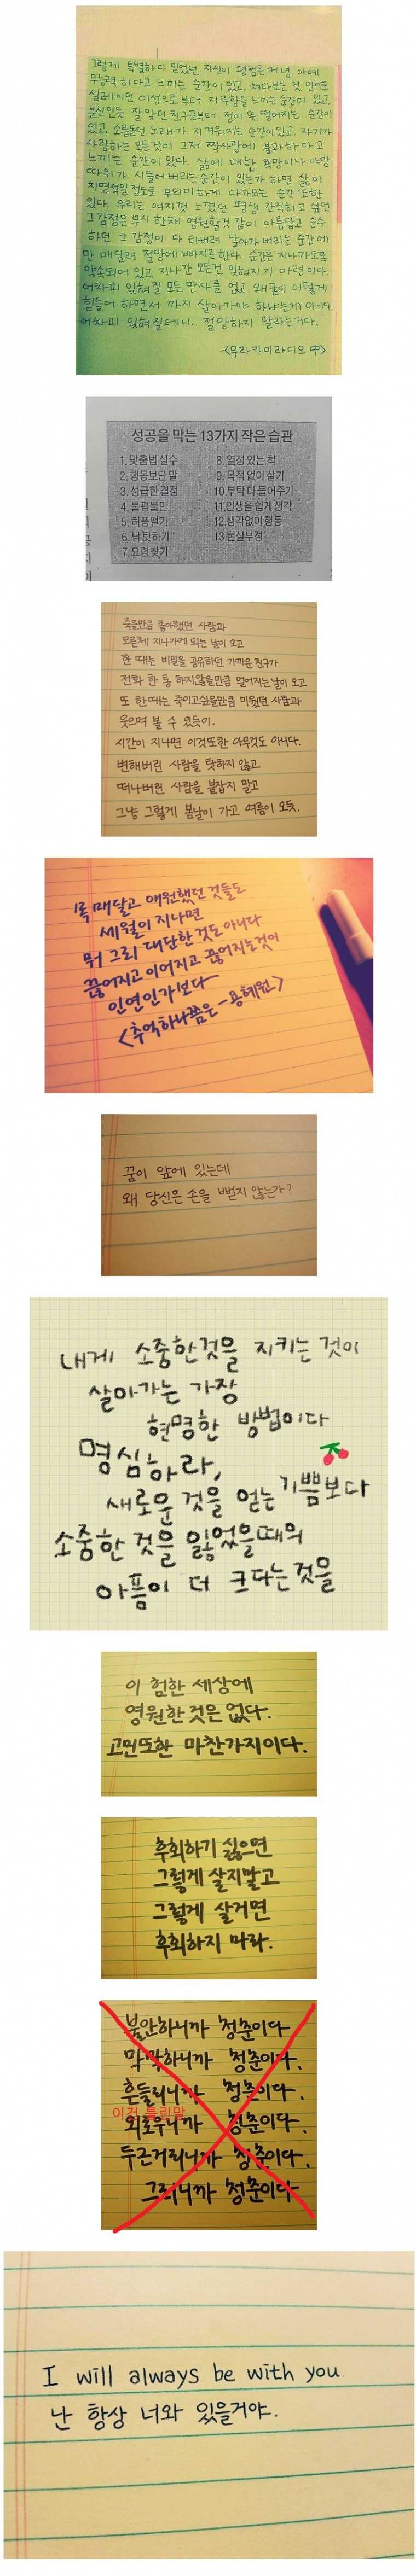 그렇게 특별하다 믿었던 자신이 평범은 커녕 아예
무능력 하다고 느끼는 순간이 있고, 쳐다보는 것 만으로
설레이던 이성으로부터 지루함을 느끼는 순간이 있고,
분신인듯 잘 맞던 친구로부터 정이 뚝 떨어지는 순간이
있고, 소름돋던 노래가 지겨워지는 순간이 있고, 자기가
사랑하는 모든것이 그저 짝사랑에 불과하다고
느끼는 순간이 있다. 삶에 대한 욕망이나 야망
따위가 시들어 버리는 순간이 있는가 하면 삶이
치명적일 정도로 무의미하게 다가오는 순간 또한
있다. 우리는 여지껏 느꼈던 평생 간직하고 싶던
그 감정은 무시 한채 영원할것 같이 아름답고 순수
하던 그 감정이 다 타버려 날아가 버리는 순간에
만 매달려 절망에 빠지곤 한다. 순간은 지나가도록
약속되어 있고, 지나간 모든건 잊혀지기 마련이다.
어차피 잊혀질 모든 만사를 얹고 왜 굳이 이렇게
힘들어 하면서 까지 살아가야 하냐는게 아니다
어차피 잊혀질테니, 절망하지 말라는거다.
<무라카미라디오 中>
성공을 막는 13가지 작은 습관
1. 맞춤법 실수
2. 행동보단 말
3. 성급한 결정
4. 불평불만
5. 허풍떨기
6. 남 탓하기
7. 요령 찾기
8. 열정 있는 척
9. 목적 없이 살기
10. 부탁 다 들어주기
11. 인생을 쉽게 생각
12. 생각없이 행동
13. 현실부정
죽을만큼 좋아했던 사람과
모른체 지나가게 되는 날이 오고
한 때는 비밀을 공유하던 가까운 친구가
전화 한 통 하지 않을만큼 멀어지는 날이 오고
또 한때는 죽이고싶을만큼 미웠던 사람과
웃으며 볼 수 있듯이.
시간이 지나면 이것또한 아무것도 아니다.
변해버린 사람을 탓하지 않고
떠나버린 사람을 붙잡지 말고
그냥 그렇게 봄날이 가고 여름이 오듯.
목 매달고 애원했던 것들도
세월이 지나면
뭐 그리 대단한 것도 아니다
끊어지고 이어지고 끊어지는것이
인연인가보다
<추억하나쯤은 - 용혜원>
꿈이 앞에 있는데
왜 당신은 손을 뻗지 않는가?
내게 소중한것을 지키는 것이
살아가는 가장
현명한 방법이다
명심하라,
새로운 것을 얻는 기쁨보다
소중한 것을 잃었을때의
아픔이 더 크다는것을
이 험한 세상에
영원한 것은 없다.
고민또한 마찬가지이다.
후회하기 싫으면
그렇게 살지말고
그렇게 살거면
후회하지 마라.
불안하니까 청춘이다
막막하니까 청춘이다.
흔들리니까 청춘이다.
이건 틀린말
외로우니까 청춘이다.
두근거리니까 청춘이다.
그러니까 청춘이다
I will always be with you.
난 항상 너와 있을거야.